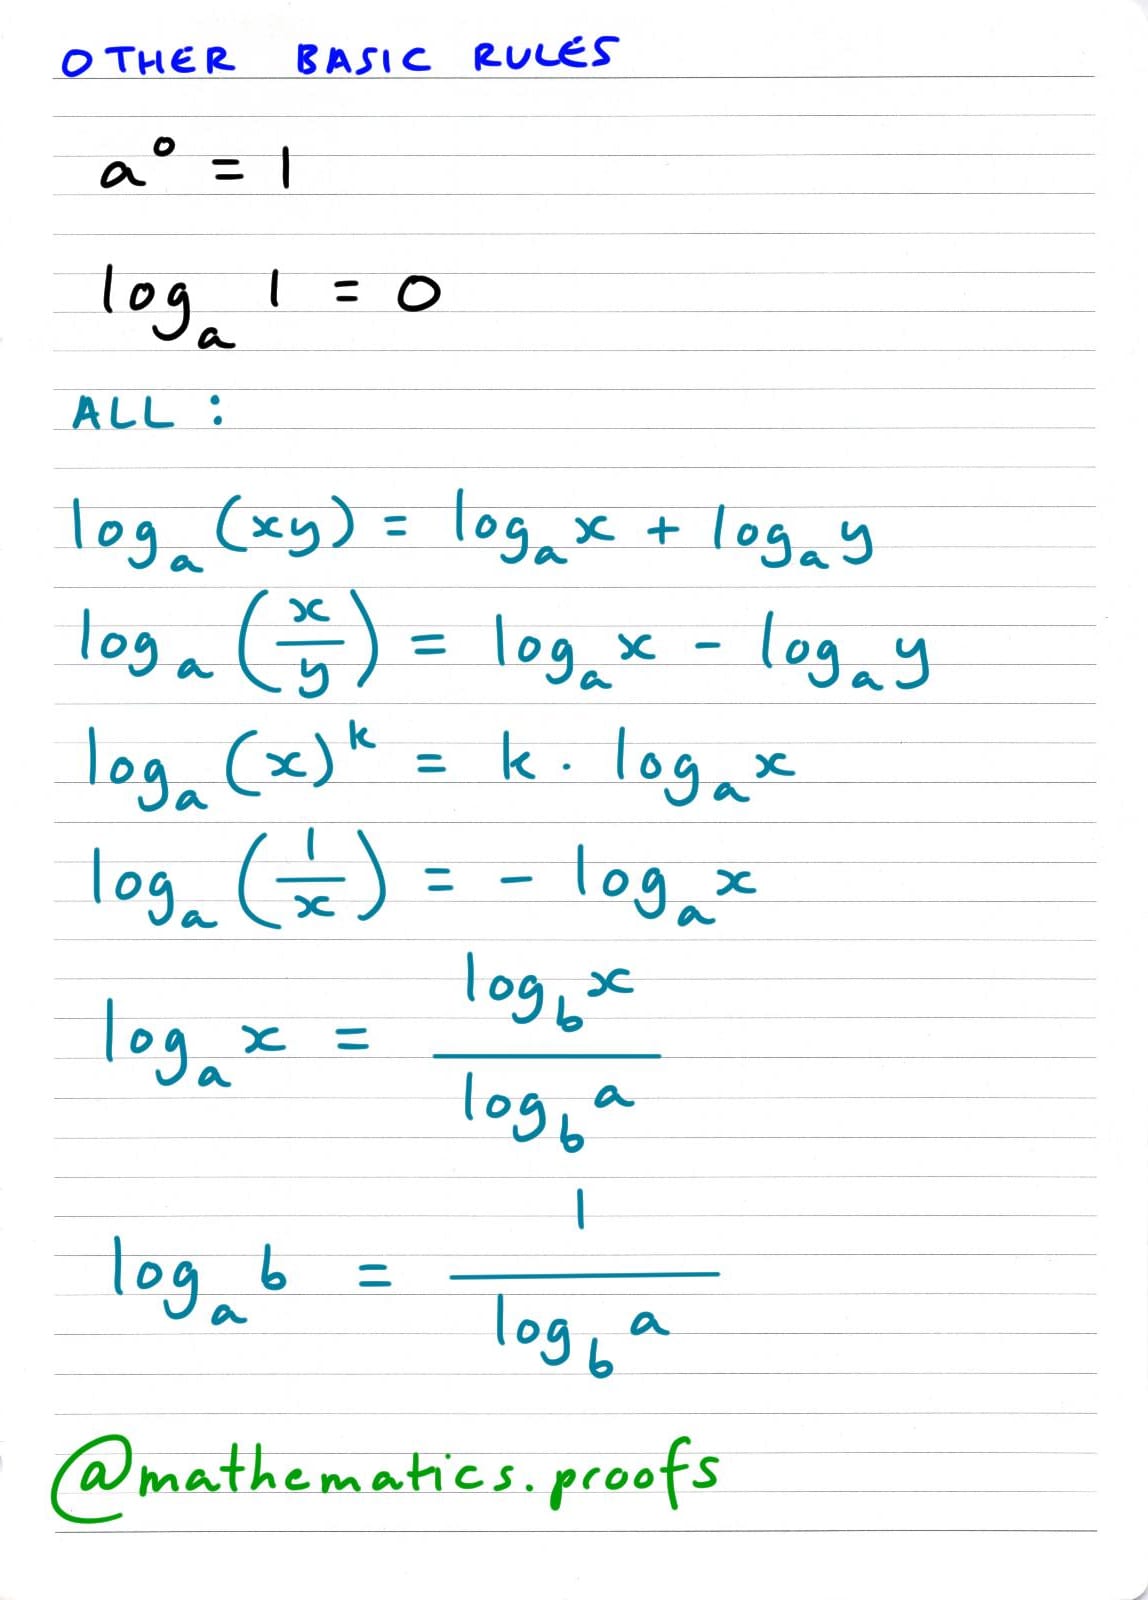 OTHER BASIC RULES
a⁰ = 1
logₐ 1 = 0
ALL :
logₐ (xy) = logₐ x + logₐ y
logₐ (x/y) = logₐ x - logₐ y
logₐ (x)ᵏ = k . logₐ x
logₐ (1/x) = - logₐ x
logₐ x = log_b x / log_b a
logₐ b = 1 / log_b a
@mathematics.proofs